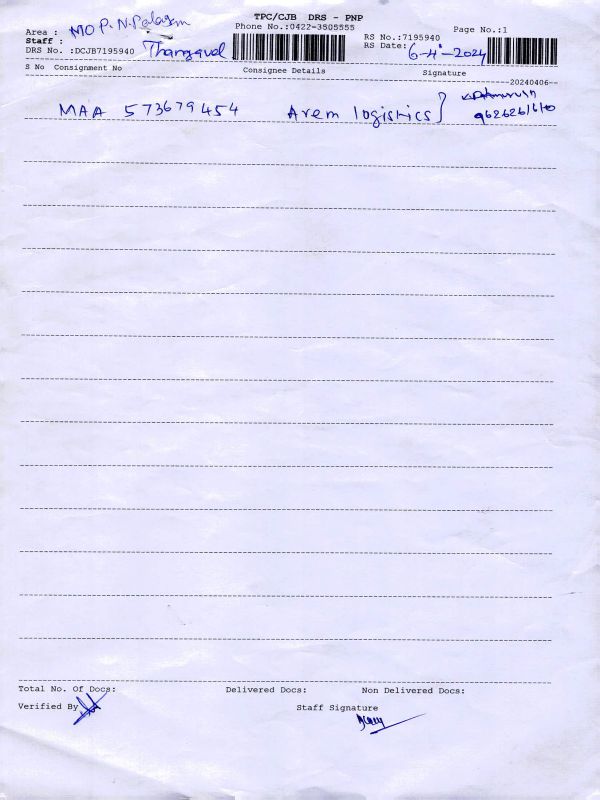 TPC/CJB DRS - PNP
Phone No.:0422-3505555
Page No.:1
Area : MO P. N. Palayam
Staff : Thangavel
RS No.:7195940
DRS No. :DCJB7195940
RS Date: 6-4-2024
S No Consignment No Consignee Details Signature
20240406
MAA 573679454 Arem logistics
Total No. Of Docs: Delivered Docs: Non Delivered Docs:
Verified By Staff Signature